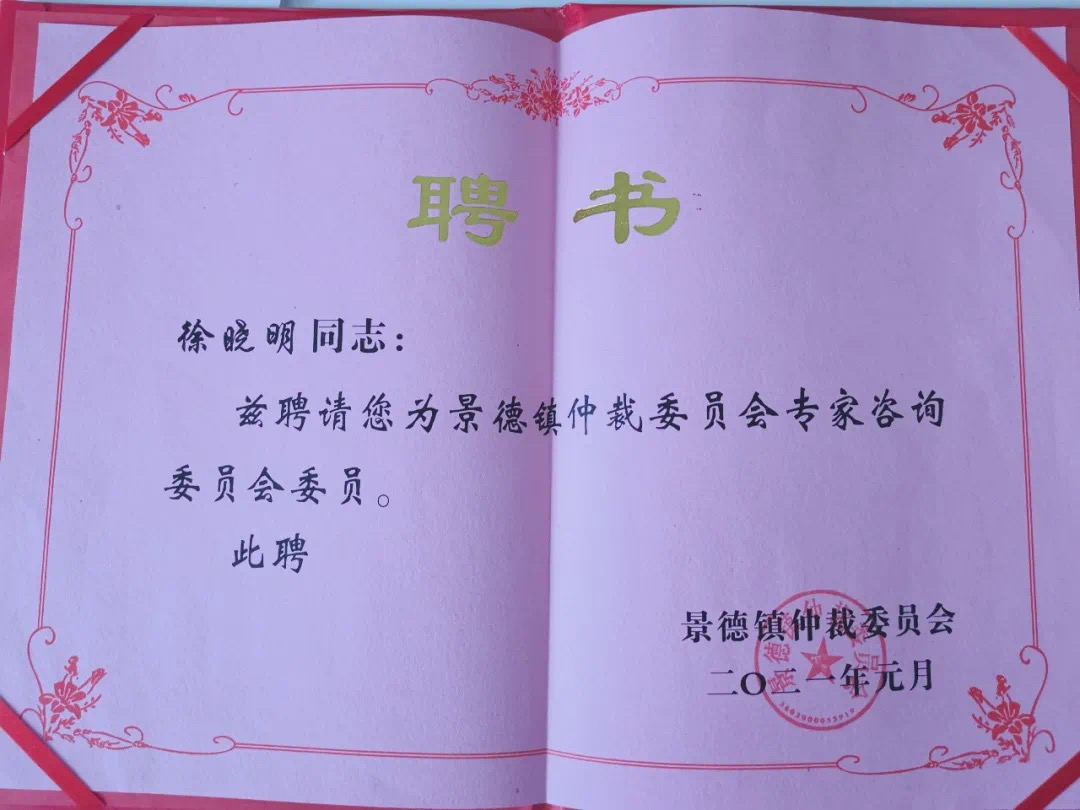 聘书
徐晓明同志：
兹聘请您为景德镇仲裁委员会专家咨询
委员会委员。
此聘
景德镇仲裁委员会
二〇二一年元月